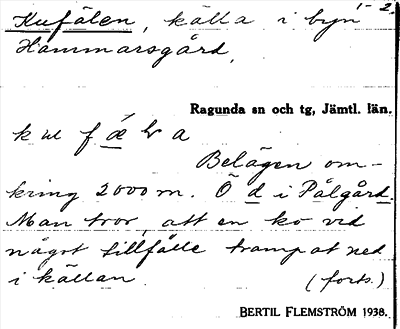 1-2.
Kufälen, källa i byn
Hammarsgård,
Ragunda sn och tg, Jämtl. län.
Belägen om-
kring 2000 m. Ö d i Pålgård.
Man tror, att en ko vid
något tillfälle trampat ned
i källan. (forts.)
BERTIL FLEMSTRÖM 1938.